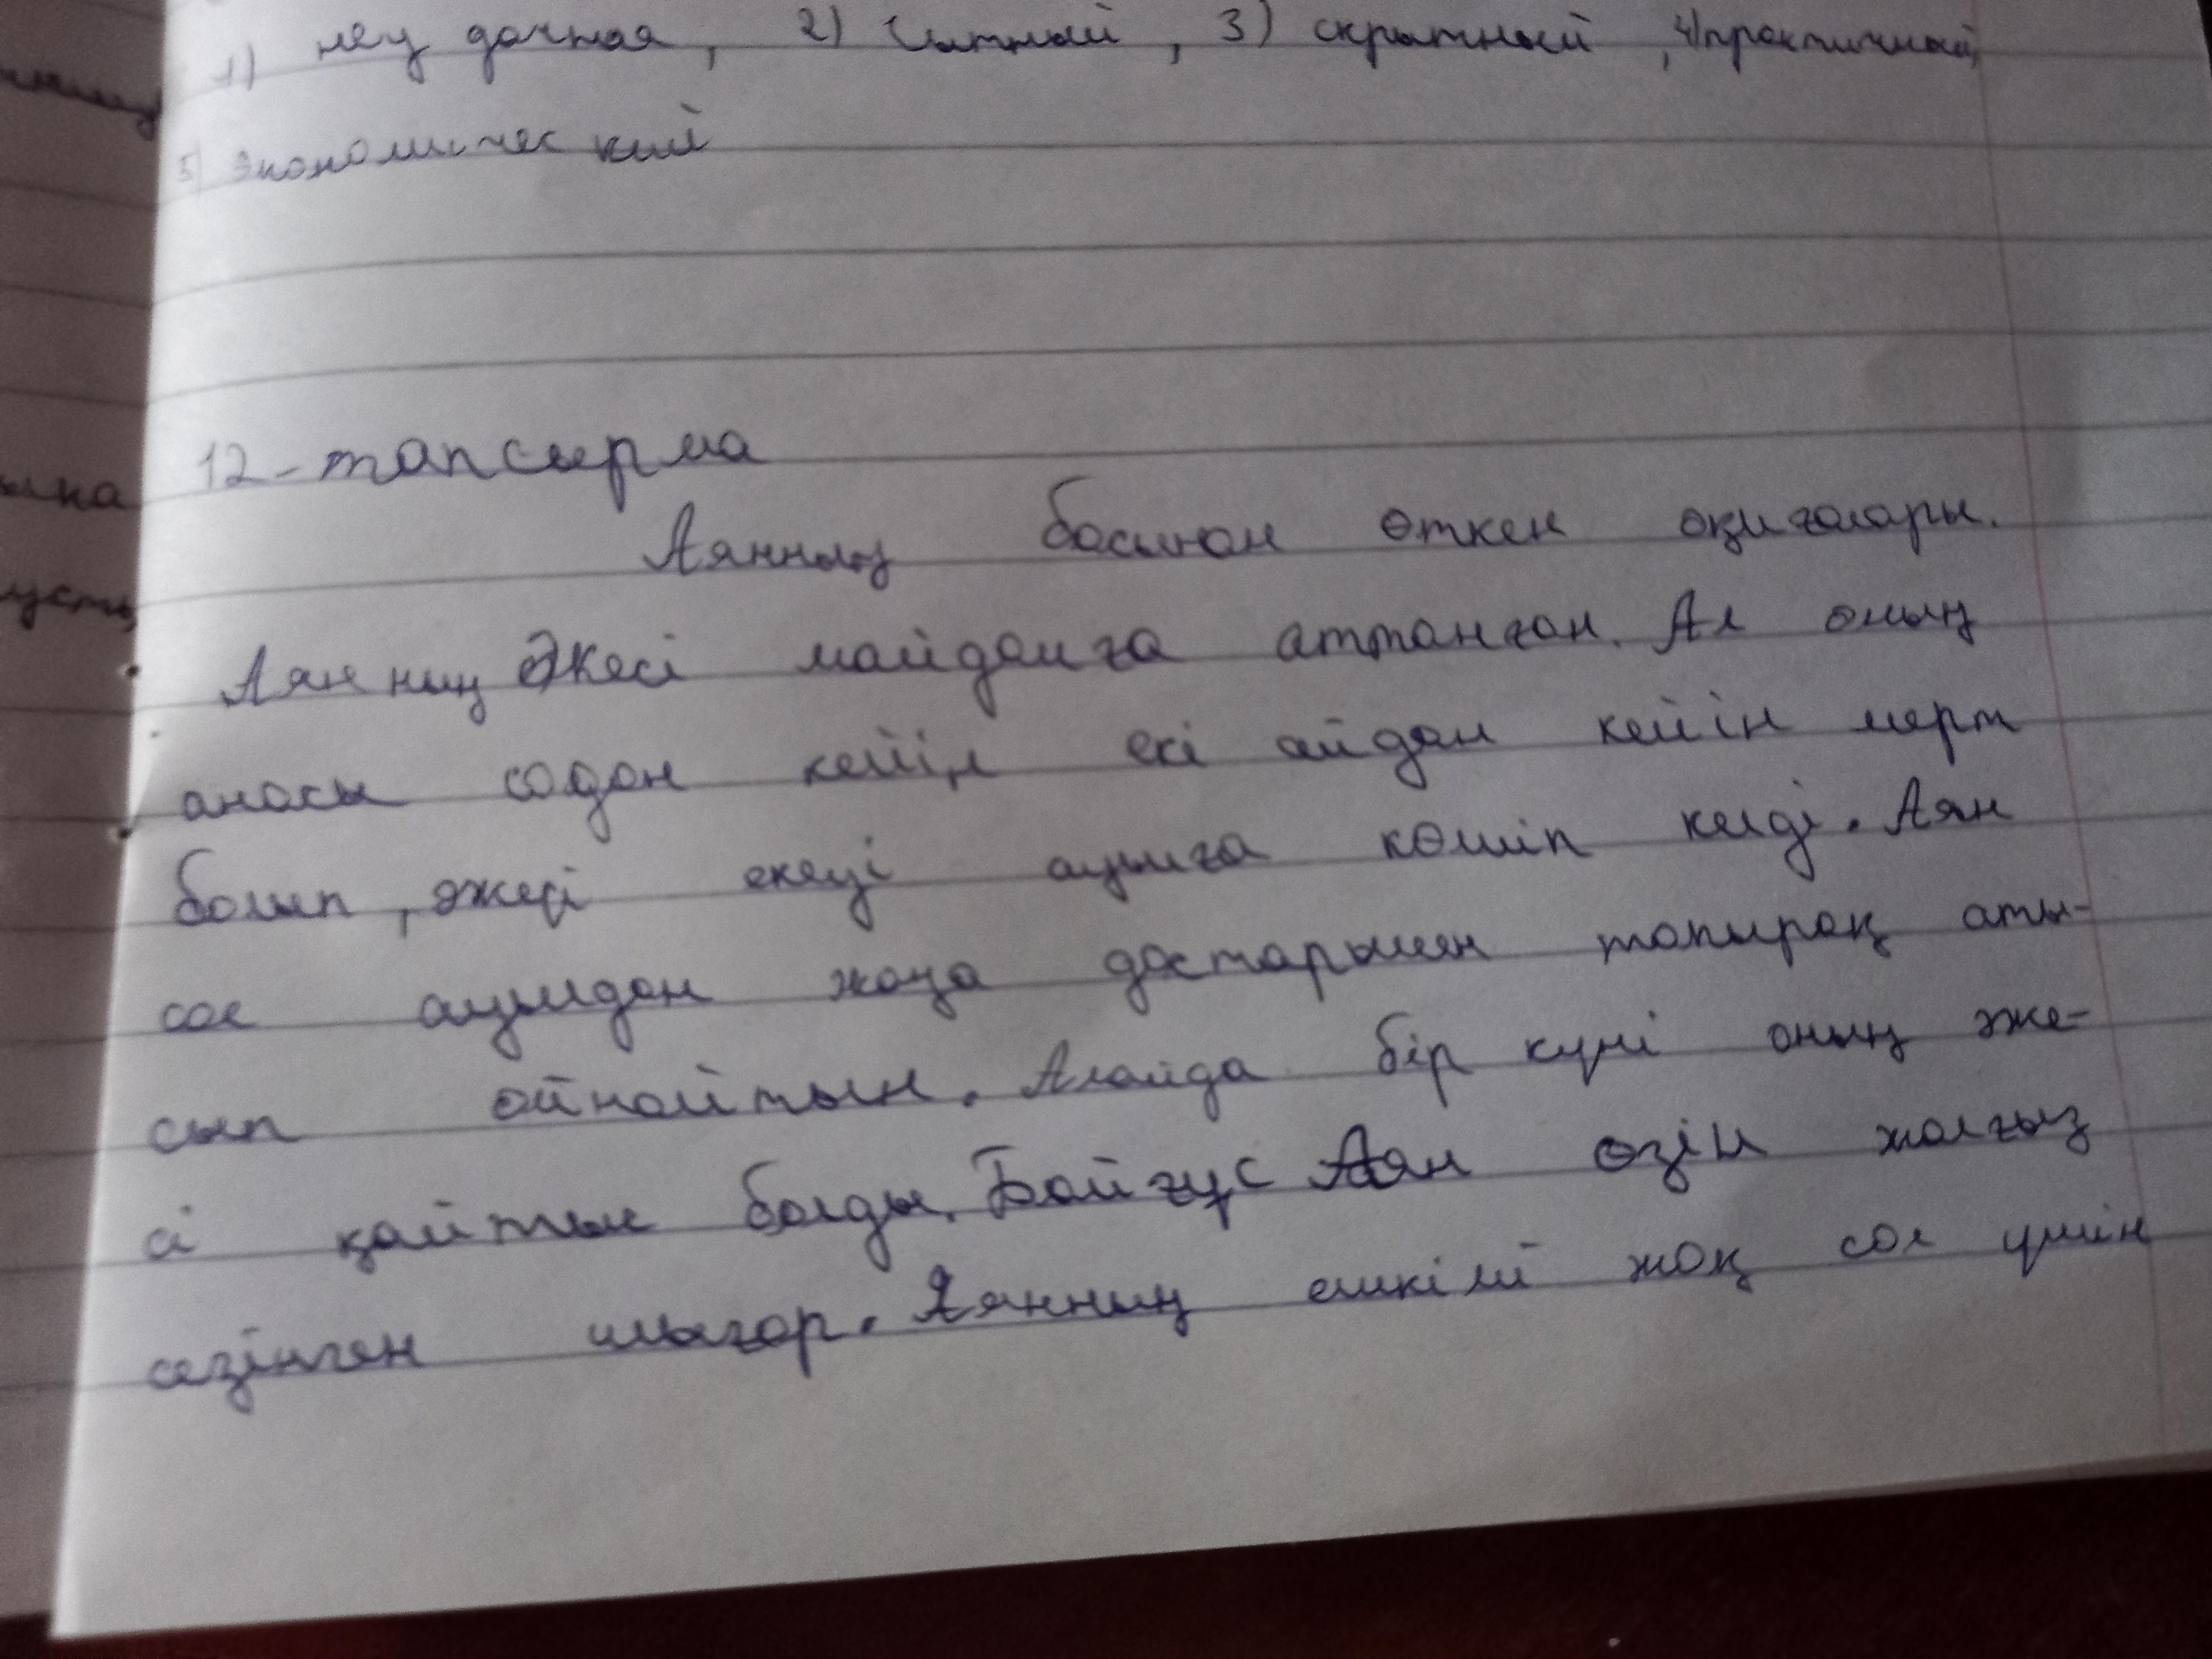 1) неудачная, 2) сытный, 3) скрытный, 4) практичный,
5) экономический
12-тапсырма
Аянның басынан өткен оқиғалары.
Аянның Әкесі майданға аттанған. Ал оның
анасы содан кейін екі айдан кейін мерт
болып, әжесі екеуі ауылға көшіп келді. Аян
сол ауылдан жаңа достарымен топырақ аты-
сып ойнайтын. Алайда бір күні оның әже-
сі қайтыс болды. Бейғұс Аян өзін жалғыз
сезінген шығар. Аянның ешкімі жоқ сол үшін